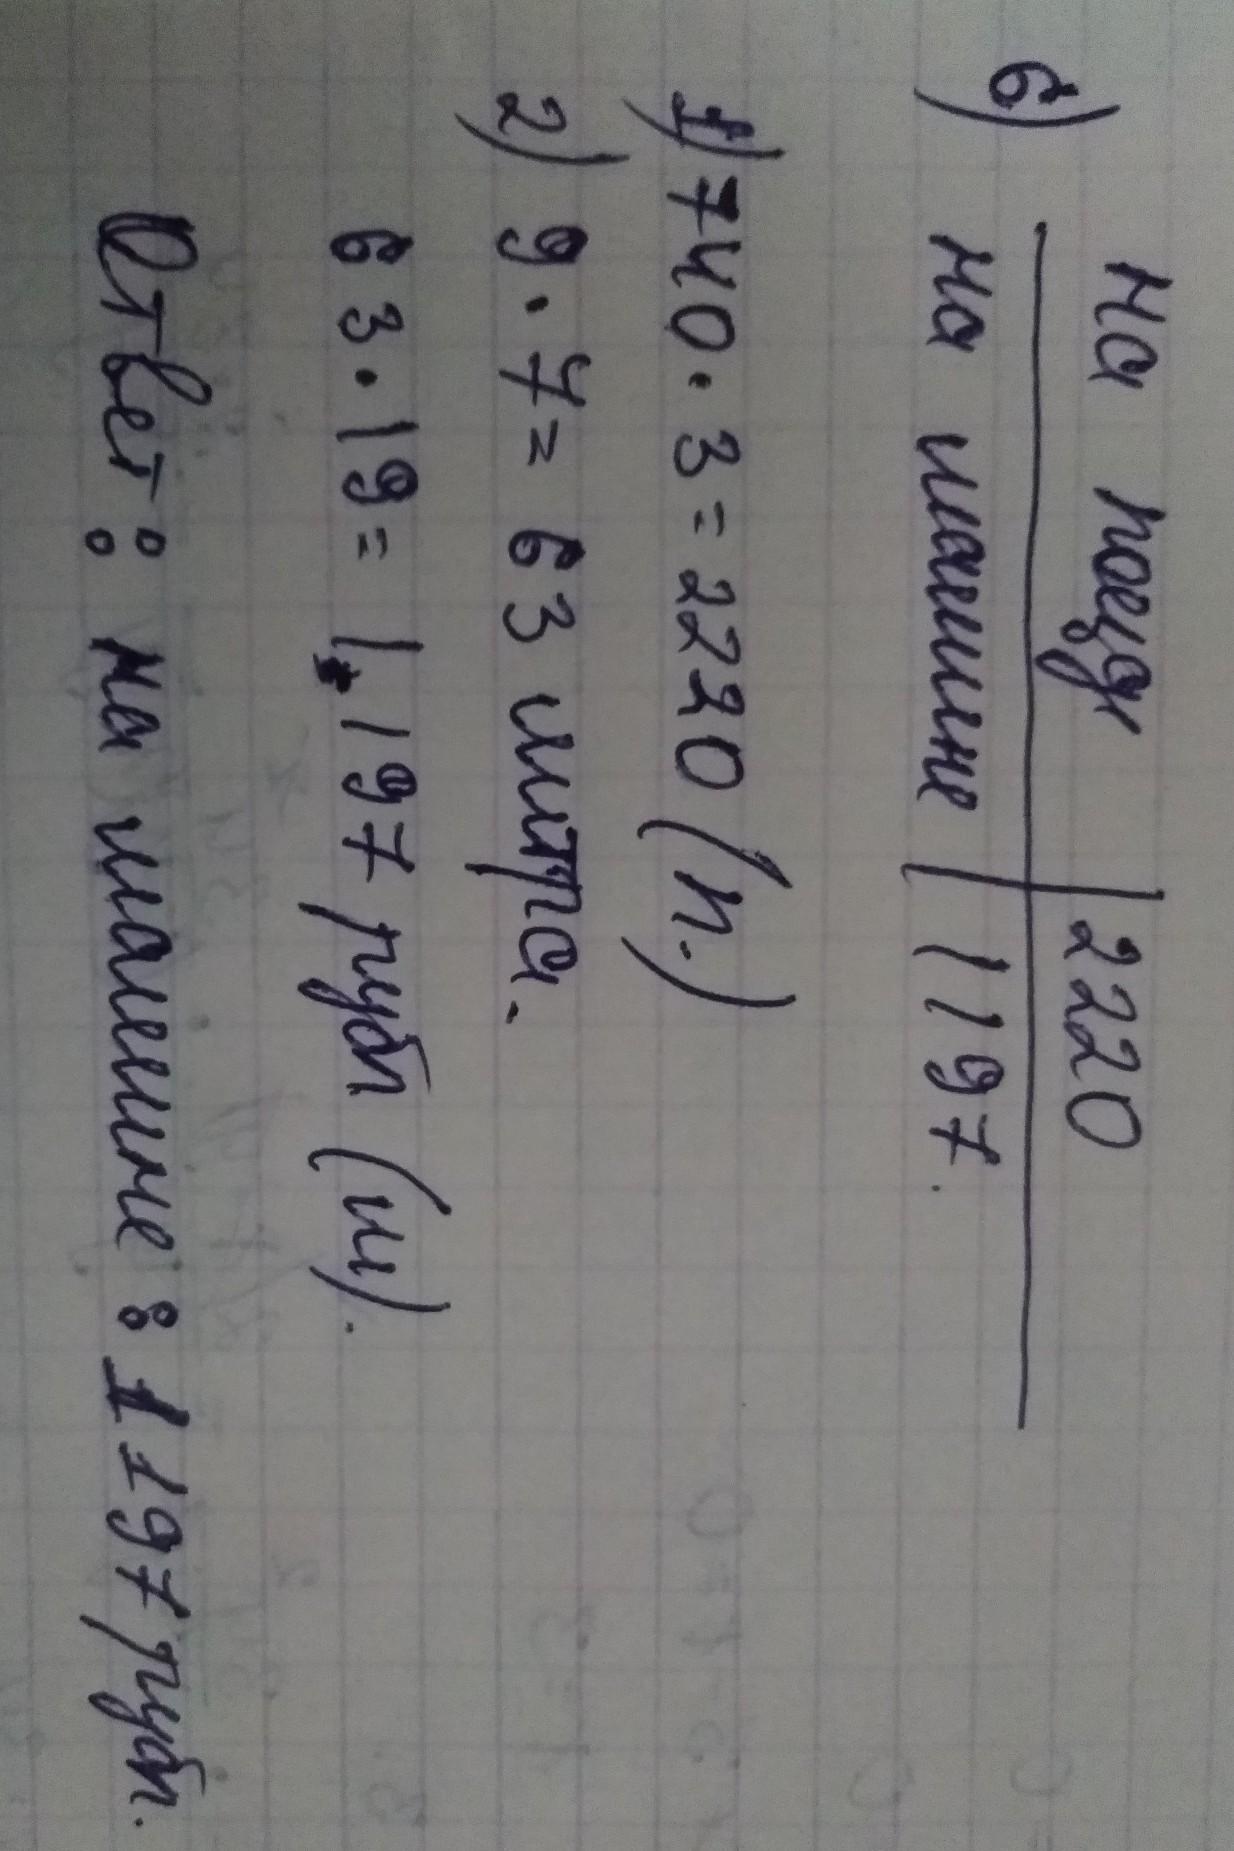 6) На поезде | 2220
На машине | 1197.
1) 740 · 3 = 2220 (п.)
2) 9 · 7 = 63 литра.
63 · 19 = 1.197 рубл (м).
Ответ: на машине: 1197 рубл.